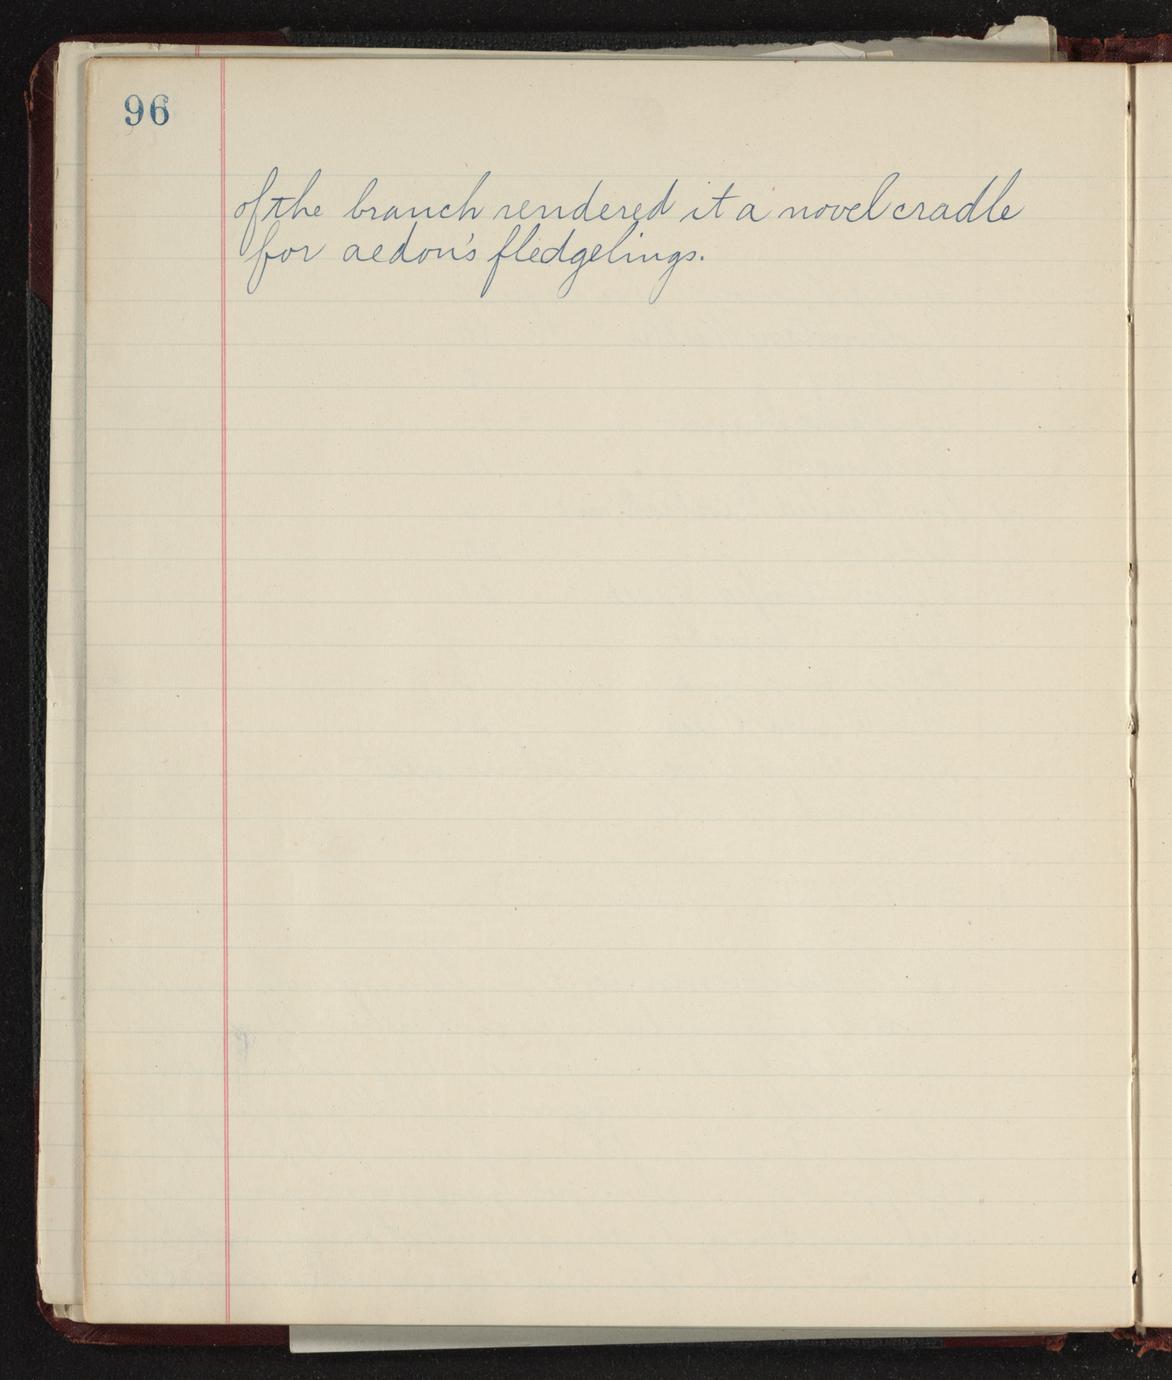 96
of the branch rendered it a novel cradle
for aedon's fledgelings.